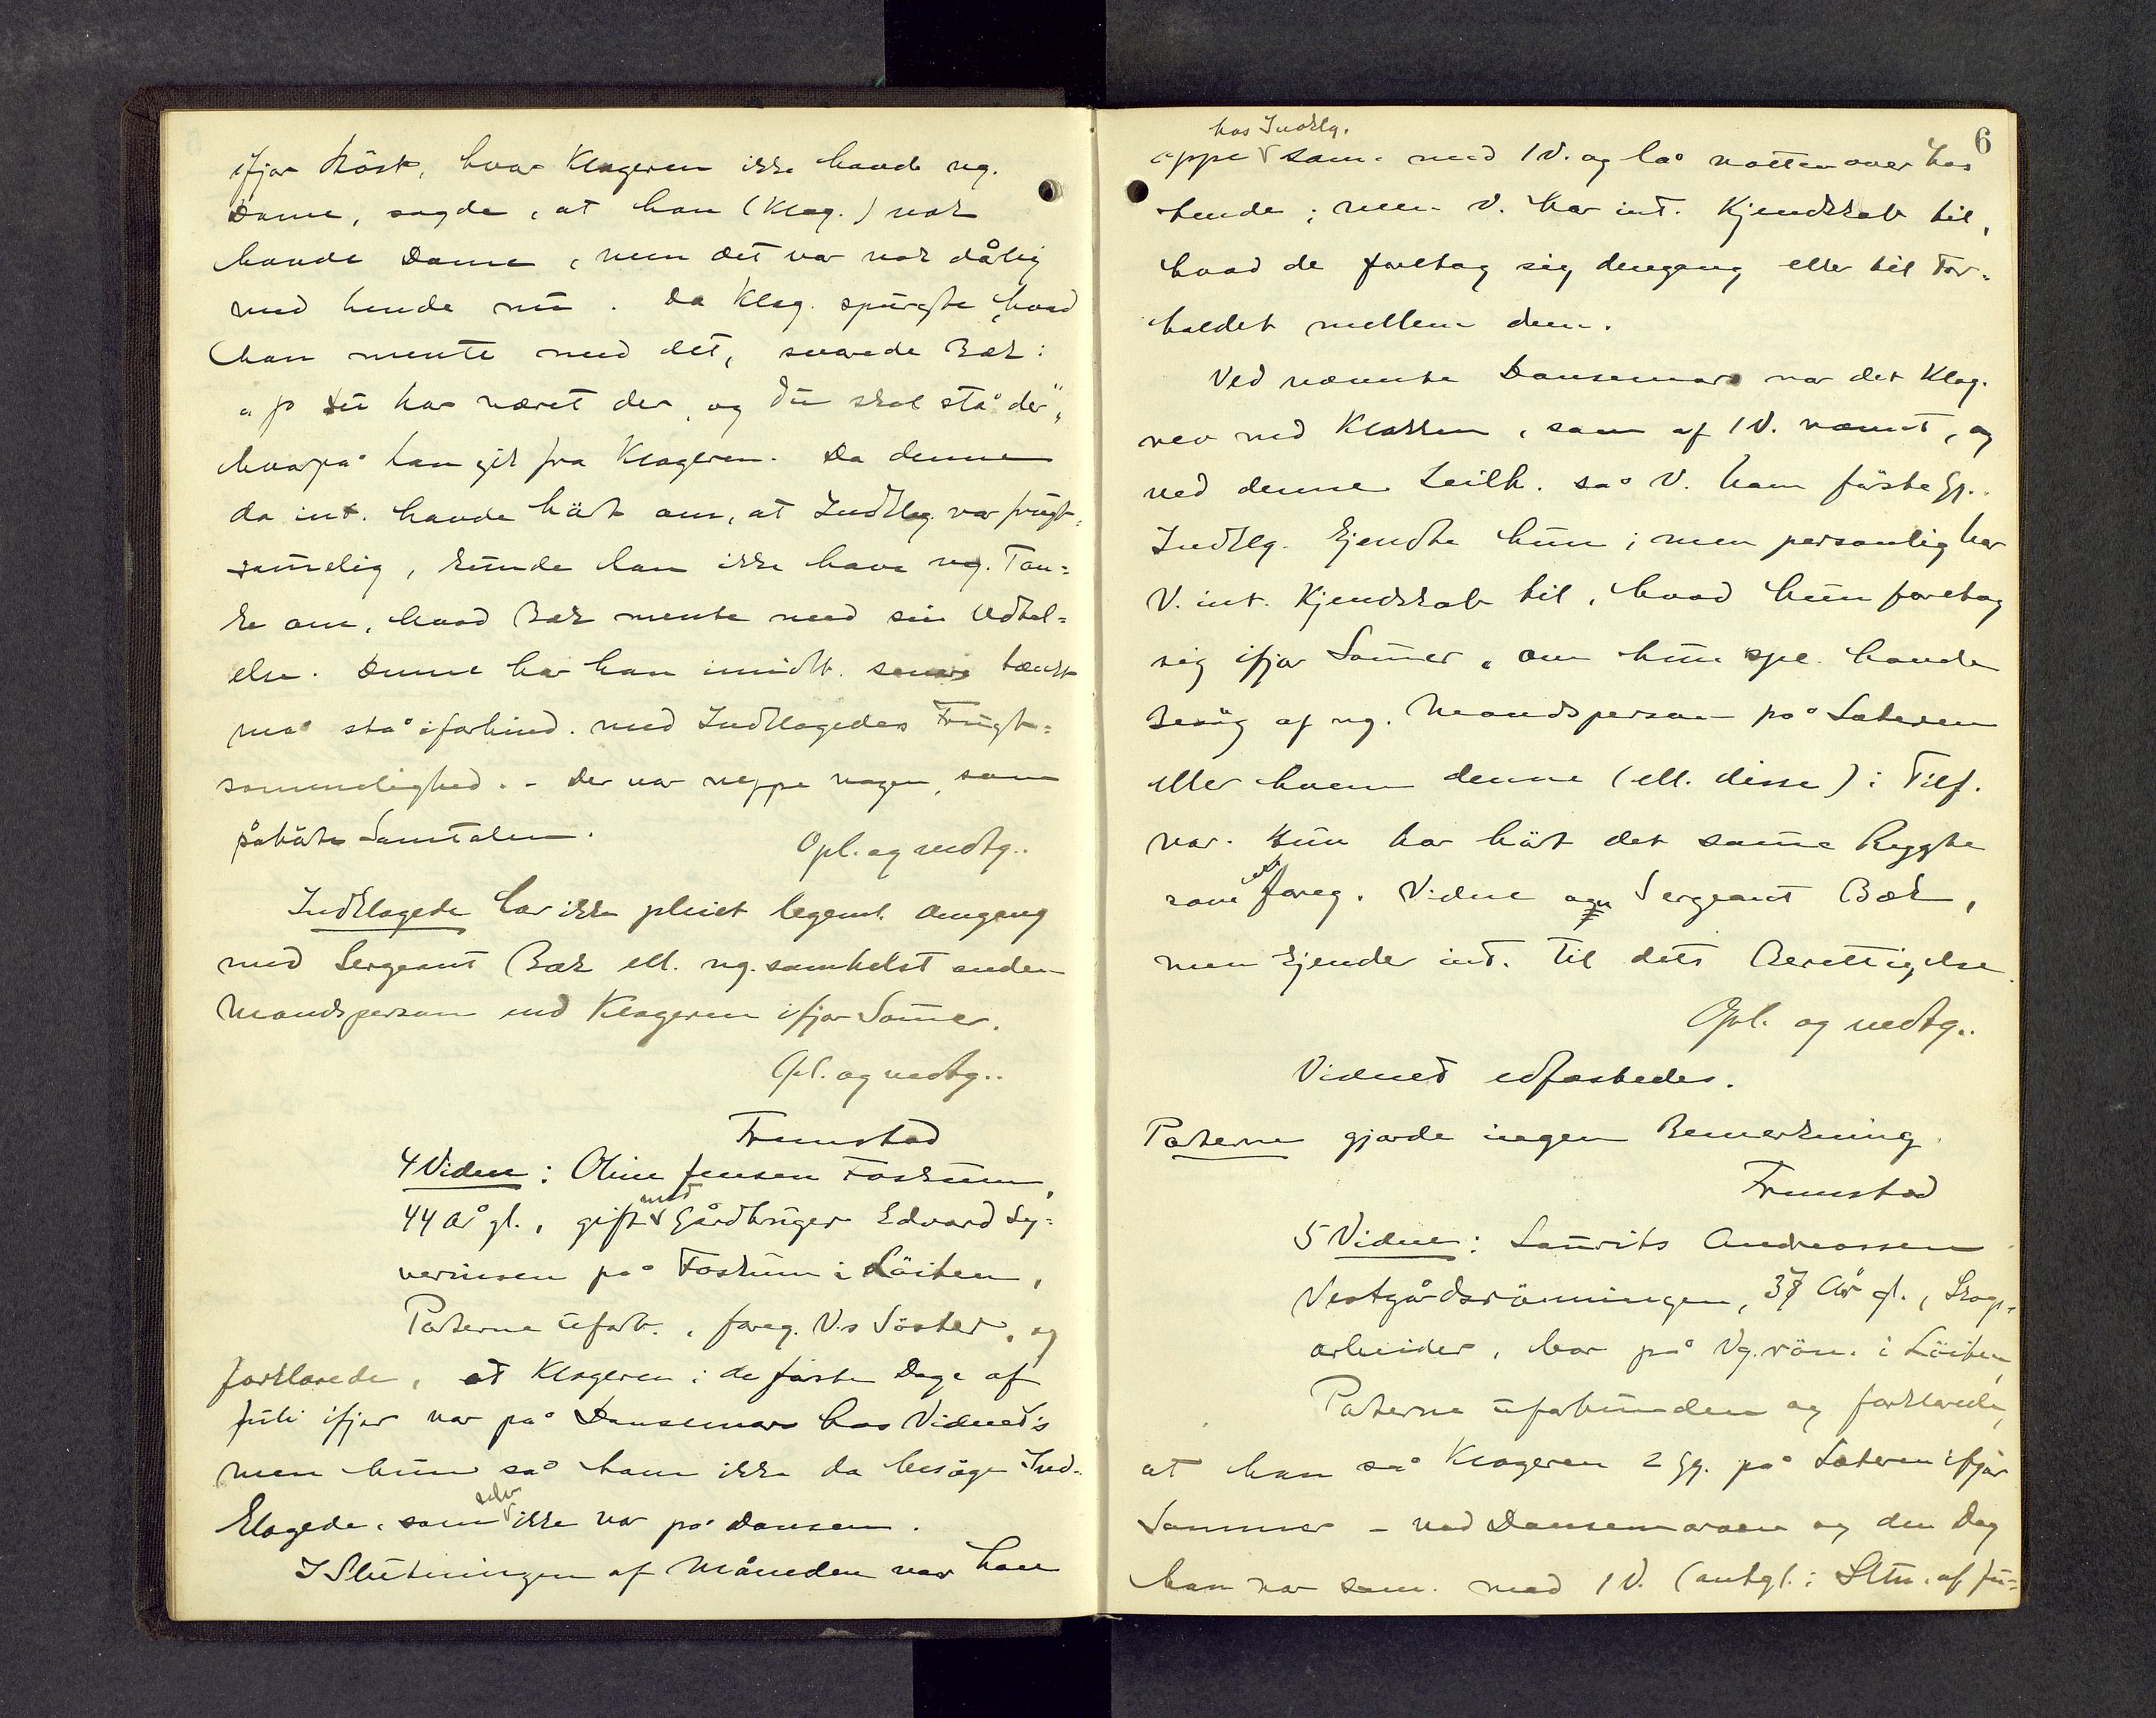 ifjor Høst, hvor Klageren ikke havde ng.
Dame, sagde, at han (Klag.) nok
havde Dame, men det var nok dålig
med hende nu. Da Klag. spurgte, hvad
han mente med det, svarede Bæk:
"Jo du har været der, og du skal stå der",
hvorpå han gik fra Klageren. Da denne
da int. havde hørt om, at Indklag. var frugt-
sommelig, kunde han ikke have ng. Tan-
ke om, hvad Bæk mente med sin Udtal-
else. Denne har han imidlt. senere tænkt
må stå i forbind. med Indklagedes Frugt-
sommelighed. - Der var neppe nogen, som
påhørte Samtalen.
Opl. og vedtg..
Indklagede har ikke pleiet legeml. Omgang
med Sergeant Bæk ell. ng. somhelst anden
Mandsperson end Klageren ifjor Sommer.
Opl. og vedtg..
Frenstad
4 Vidne: Oline Jensen Foskum,
44 År gl., gift med Gårdbruger Edvard Sy-
verinsen på Foskum i Løiten,
Parterne uforb., foreg. V.s Søster, og
forklarede, at Klageren i de første Dage af
Juli ifjor var på Dansemoro hos Vidnet,
men hun så ham ikke da besøge Ind-
klagede, som selv ikke var på Dansen.
I Slutningen af Måneden var han
6
oppe hos Indklg. sam. med 1 V. og lå natten over hos
hende; men V. har int. Kjendskab til,
hvad de foretog sig dengang eller til For-
holdet mellem dem.
Ved nævnte Dansemoro var det Klag.
rev ned Klokken, som af 1 V. nævnt, og
ved denne Leilh. så V. ham første Gg..
Indklg. kjendte hun; men personlig har
V. int. Kjendskab til, hvad hun foretog
sig ifjor Sommer, om hun spec. havde
Besøg af ng. Mandsperson på Sæteren
eller hvem denne (ell. disse) i Tilf.
var. Hun har hørt det samme Rygte
som foreg. Vidne om Sergeant Bæk,
men kjender int. til dets Berettigelse.
Opl. og vedtg..
Vidnet edfæstedes.
Parterne gjorde ingen Bemerkning.
Frenstad
5 Vidne: Laurits Andreassen
Vestgårdsrønningen, 37 År gl., Skog-
arbeider, bor på Vg.røn. i Løiten,
Parterne uforbunden og forklarede,
at han så Klageren 2 Gg. på Sæteren ifjor
Sommer - ved Dansemoroen og den Dag
han var sam. med 1 V. (antgl. i Sltn. af Ju-